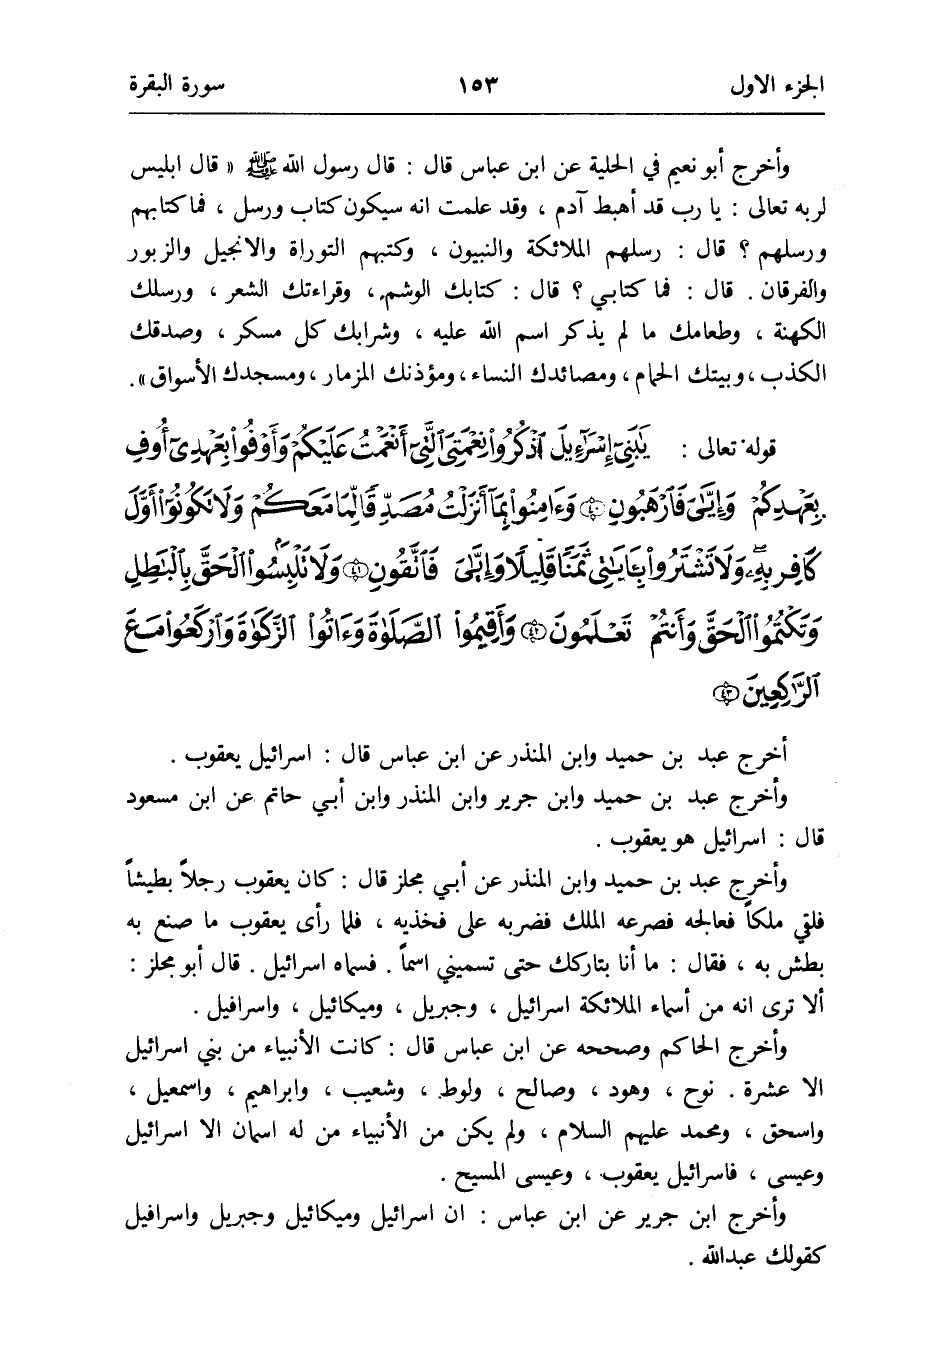 الجزء الاول ١٥٣ سورة البقرة
وأخرج أبو نعيم في الحلية عن ابن عباس قال : قال رسول الله ﷺ « قال ابليس
لربه تعالى : يا رب قد أهبط آدم ، وقد علمت انه سيكون كتاب ورسل ، فما كتابهم
ورسلهم ؟ قال : رسلهم الملائكة والنبيون ، وكتبهم التوراة والانجيل والزبور
والفرقان . قال : فما كتابي ؟ قال : كتابك الوشم ، وقراءتك الشعر ، ورسلك
الكهنة ، وطعامك ما لم يذكر اسم الله عليه ، وشرابك كل مسكر ، وصدقك
الكذب ، وبيتك الحمام ، ومصائدك النساء ، ومؤذنك المزمار ، ومسجدك الأسواق » .
قوله تعالى : يَٰبَنِىٓ إِسْرَٰٓءِيلَ ٱذْكُرُوا۟ نِعْمَتِىَ ٱلَّتِىٓ أَنْعَمْتُ عَلَيْكُمْ وَأَوْفُوا۟ بِعَهْدِىٓ أُوفِ
بِعَهْدِكُمْ وَإِيَّٰىَ فَٱرْهَبُونِ ﴿٤٠﴾ وَءَامِنُوا۟ بِمَآ أَنزَلْتُ مُصَدِّقًا لِّمَا مَعَكُمْ وَلَا تَكُونُوٓا۟ أَوَّلَ
كَافِرٍۭ بِهِۦ ۖ وَلَا تَشْتَرُوا۟ بِـَٔايَٰتِى ثَمَنًا قَلِيلًا وَإِيَّٰىَ فَٱتَّقُونِ ﴿٤١﴾ وَلَا تَلْبِسُوا۟ ٱلْحَقَّ بِٱلْبَٰطِلِ
وَتَكْتُمُوا۟ ٱلْحَقَّ وَأَنتُمْ تَعْلَمُونَ ﴿٤٢﴾ وَأَقِيمُوا۟ ٱلصَّلَوٰةَ وَءَاتُوا۟ ٱلزَّكَوٰةَ وَٱرْكَعُوا۟ مَعَ
ٱلرَّٰكِعِينَ ﴿٤٣﴾
أخرج عبد بن حميد وابن المنذر عن ابن عباس قال : اسرائيل يعقوب .
وأخرج عبد بن حميد وابن جرير وابن المنذر وابن أبي حاتم عن ابن مسعود
قال : اسرائيل هو يعقوب .
وأخرج عبد بن حميد وابن المنذر عن أبي مجلز قال : كان يعقوب رجلاً بطيشاً
فلقي ملكاً فعالجه فصرعه الملك فضربه على فخذيه ، فلما رأى يعقوب ما صنع به
بطش به ، فقال : ما أنا بتاركك حتى تسميني اسماً . فسماه اسرائيل . قال أبو مجلز :
ألا ترى انه من أسماء الملائكة اسرائيل ، وجبريل ، وميكائيل ، واسرافيل .
وأخرج الحاكم وصححه عن ابن عباس قال : كانت الأنبياء من بني اسرائيل
الا عشرة . نوح ، وهود ، وصالح ، ولوط ، وشعيب ، وابراهيم ، واسمعيل ،
واسحق ، ومحمد عليهم السلام ، ولم يكن من الأنبياء من له اسمان الا اسرائيل
وعيسى ، فاسرائيل يعقوب ، وعيسى المسيح .
وأخرج ابن جرير عن ابن عباس : ان اسرائيل وميكائيل وجبريل واسرافيل
كقولك عبدالله .